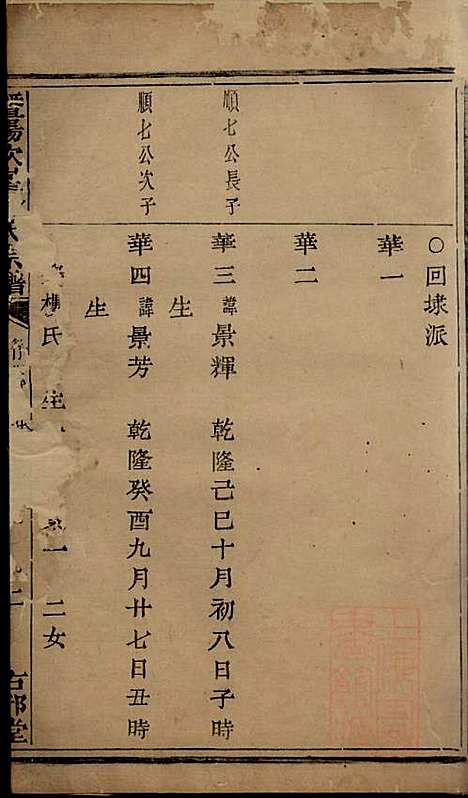 ○回埭派
華一
華二
順七公長子
華三 諱景輝 乾隆己巳十月初八日子時
生
順七公次子
華四 諱景芳 乾隆癸酉九月廿七日丑時
生
楊氏 二女
族譜